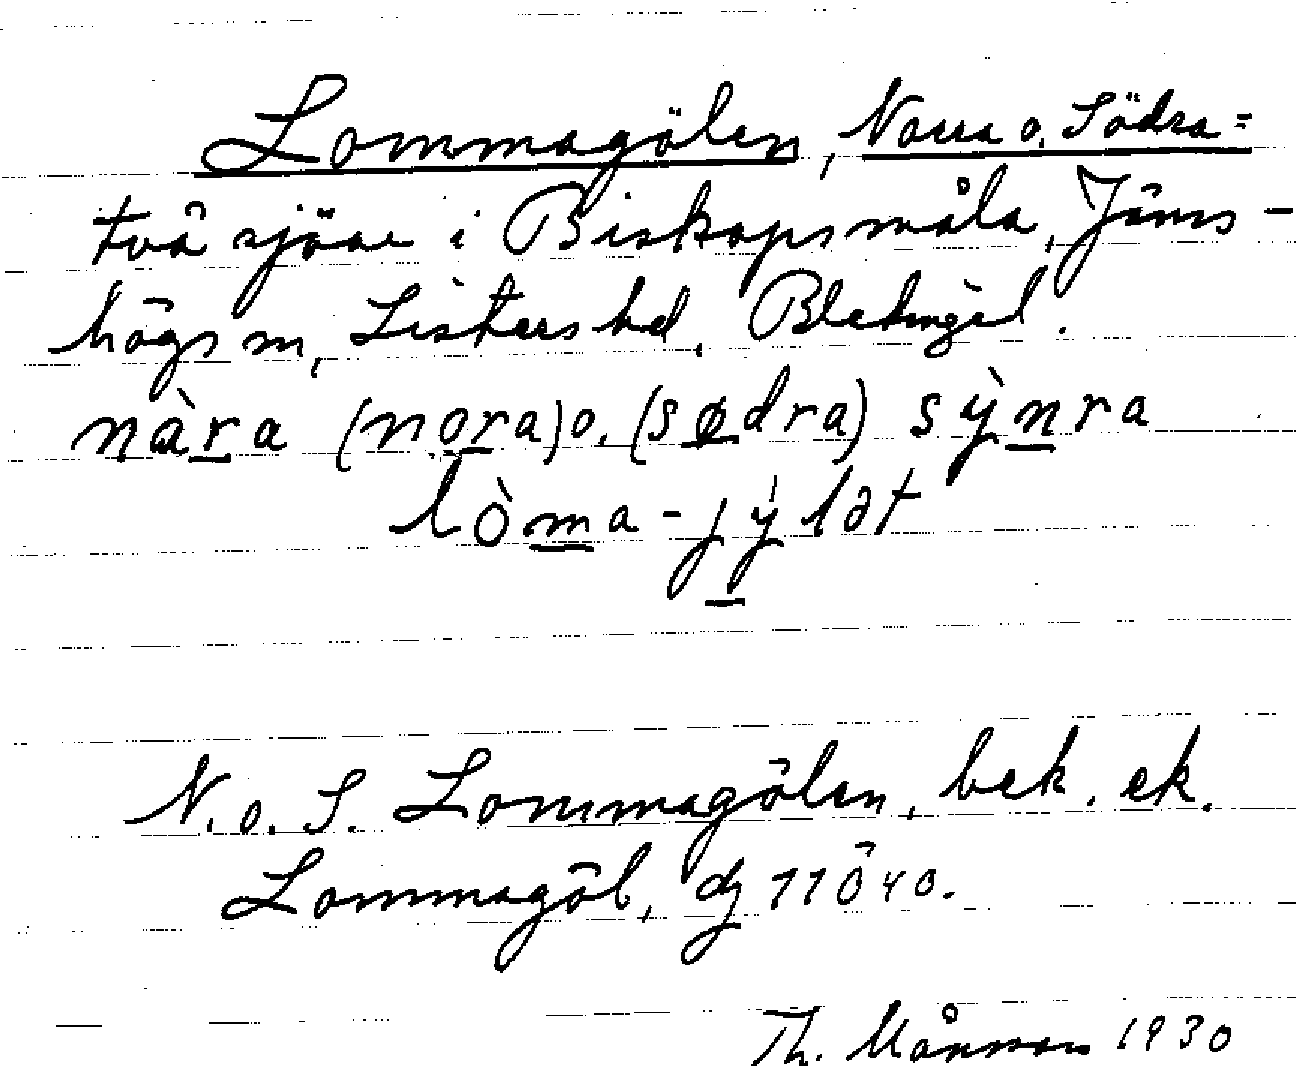 Lommagölen, Norra o. Södra =
två sjöar i Biskopsmåla, Jäms-
högs sn, Listers hd, Blekinge l.
nàra (nora) o. (sødra) sỳnra
lòma-jỳlət
N. o. S. Lommagölen, bek. ek.
Lommagöl, dg 11Ö40.
Th. Månsson 1930